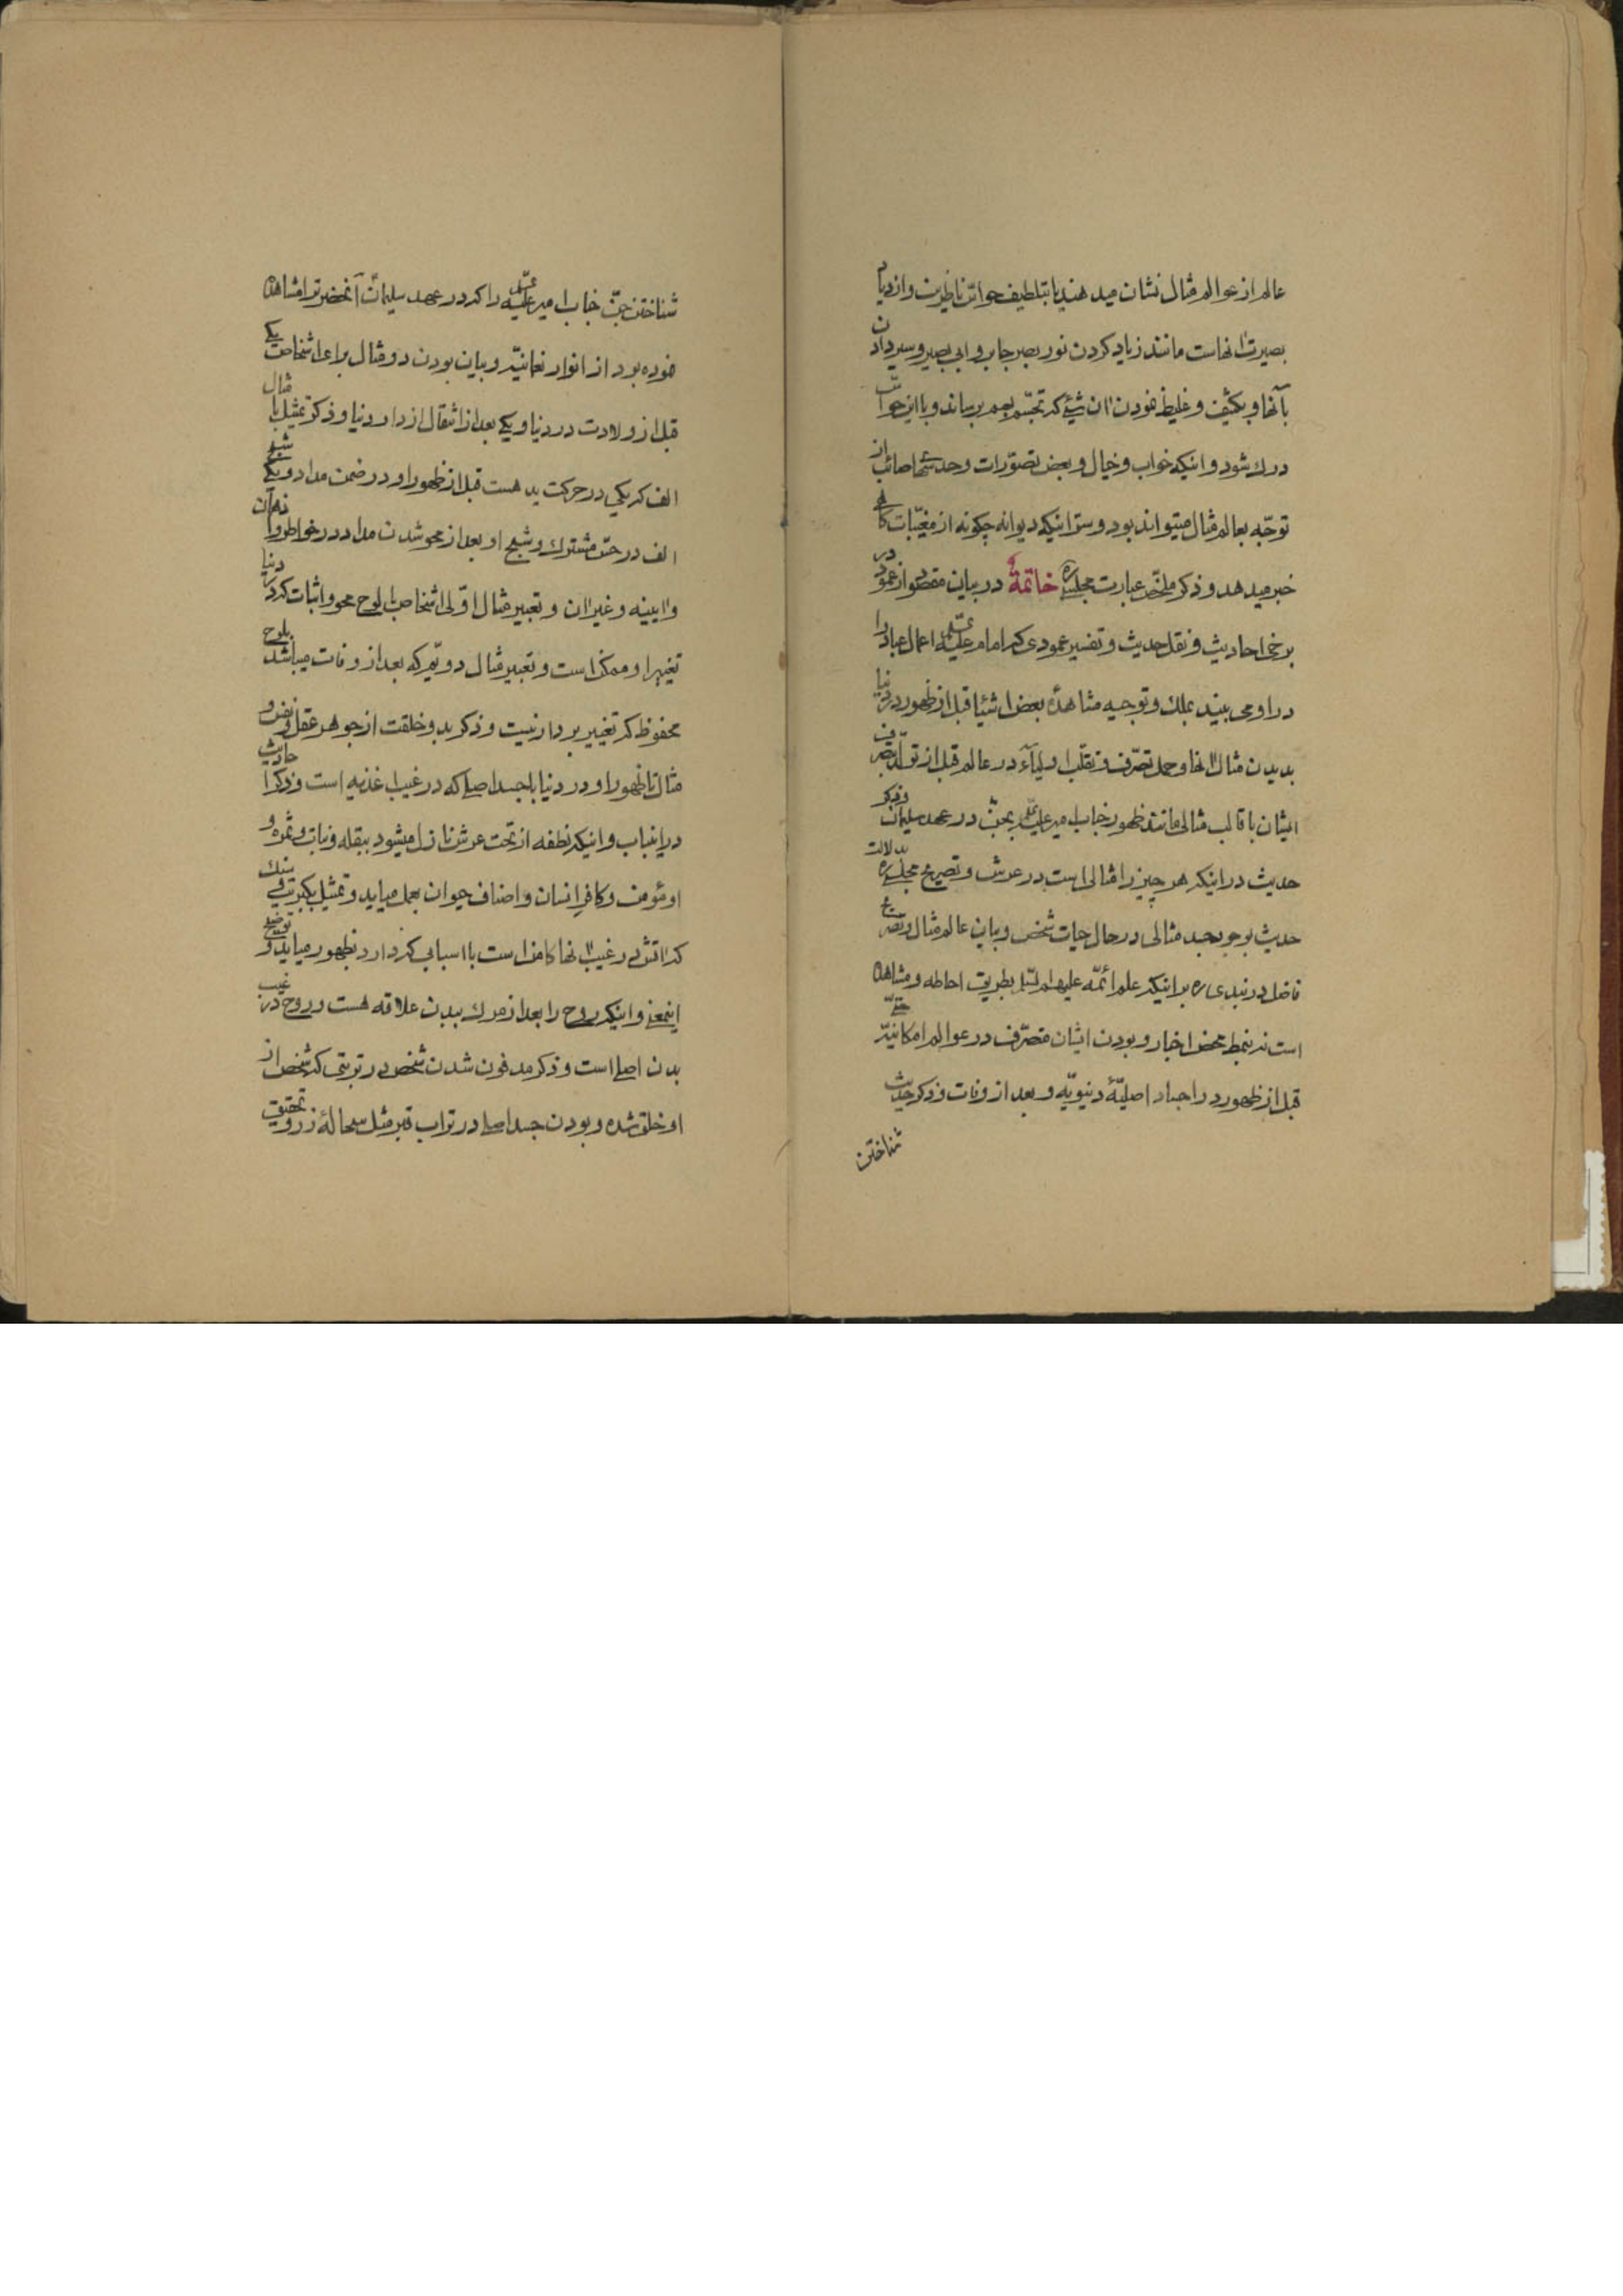 عالم از عوالم مثال نشان میدهند یا بتلطیف حواسّ ناظرین و ازدیاد
بصیرت انهاست مانند زیاد کردن نور بصر جابر و ابی بصیر و سیر دادن
بآنها و بکثیف و غلیظ نمودن ان شیئی که تجسّم بهم برساند و با این حواسّ
درک شود و اینکه خواب و خیال و بعض تصوّرات وحدسهای صائب از
توجّه بعالم مثال میتواند بود و سرّ اینکه دیوانه چگونه از مغیّبات کاهی
خبر میدهد و ذکر ملخّص عبارت مجلسی ره خاتمهٔ در بیان مقصود از عمود در
برخی احادیث و نقل حدیث و تفسیر عمودی که امام علیه السّلم اعمال عباد را
در او می بیند بملک و توجیه مشاهدهٔ بعض اشیا قبل از ظهور در دنیا
بدیدن مثال انها و حمل تصرّف و تقلّب اولیآء در عالم قبل از تولّد بتصرّف
ایشان با قالب مثالی مانند ظهور جناب امیر علیه السّلم بجنّ در عهد سلیمان و ذکر
حدیث در اینکه هر چیز را مثالی است در عرش و تصریح مجلسی ره بدلالت
حدیث بوجود جسد مثالی در حال حیات شخص و بیان عالم مثال و تصریح
فاضل دربندی ره بر اینکه علم ائمّه علیهم السّلم بطریق احاطه و مشاهده
است نه بنمط محض اخبار و بودن ایشان متصرّف در عوالم امکانیّه حتّی
قبل از ظهور در اجساد اصلیّهٔ دنیویّه و بعد از وفات و ذکر حدیث
شناختن
شناختن جنّ جناب امیر علیه السّلم را که در عهد سلیمان آنحضرت را مشاهده
نموده بود از انوار نعمانیّه و بیان بودن دو مثال برای اشخاص یکی
قبل از ولادت در دنیا و یکی بعد از انتقال از دار دنیا و ذکر تمثیل با مثال
الف که یکی در حرکت ید هست قبل از ظهور او در ضمن مداد و یکی شبح
الف در حسّ مشترک و شبح او بعد از محو شدن مداد در خواطر و اذهان
و ایینه و غیر ان و تعبیر مثال اوّلی اشخاص با لوح محو و اثبات که در دنیا
تغییر او ممکن است و تعبیر مثال دویّم که بعد از وفات میباشد بلوح
محفوظ که تغییر بردار نیست و ذکر بدو خلقت از جوهر عقل و نفس و
مثال تا ظهور او در دنیا با جسد اصلی که در غیب اغذیه است و ذکر احادیث
در اینباب و اینکه نطفه از تحت عرش نازل میشود ببقله و نبات و ثمره و
او مؤمن و کافر انسان و اصناف حیوان بعمل میاید و تمثیل بکبریت و سنک
که اتش در غیب انها کامن است با اسبابی که دارد بظهور میاید و توضیح
اینمعنی و اینکه روح را بعد از مرک ببدن علاقه هست و روح در غیب
بدن اصلی است و ذکر مدفون شدن شخص در تربتی که شخص از
او خلق شده و بودن جسد اصلی در تراب قبر مثل سحالهٔ زر و تحقیق